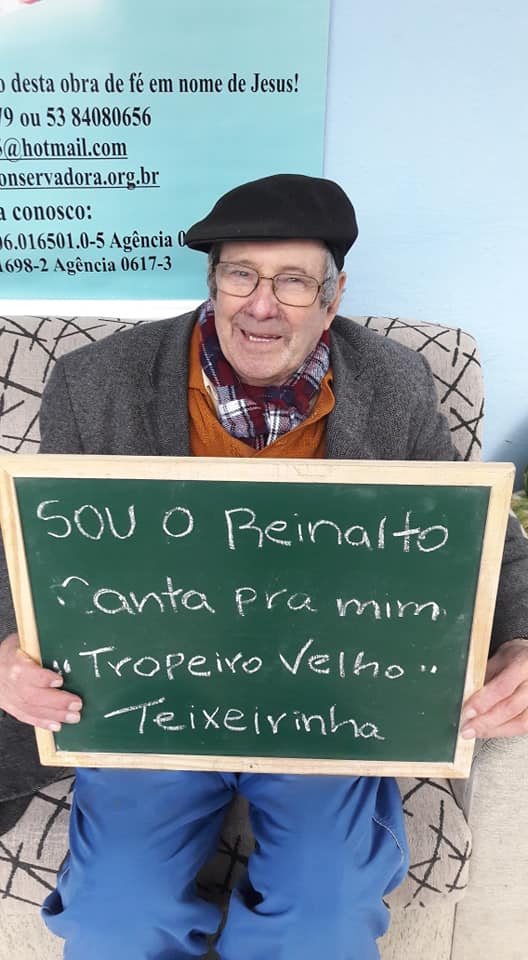 o desta obra de fé em nome de Jesus!
79 ou 53 84080656
@hotmail.com
onservadora.org.br
a conosco:
06.016501.0-5 Agência 0
1698-2 Agência 0617-3
SOU O Reinalto
Canta pra mim
"Tropeiro Velho"
Teixeirinha